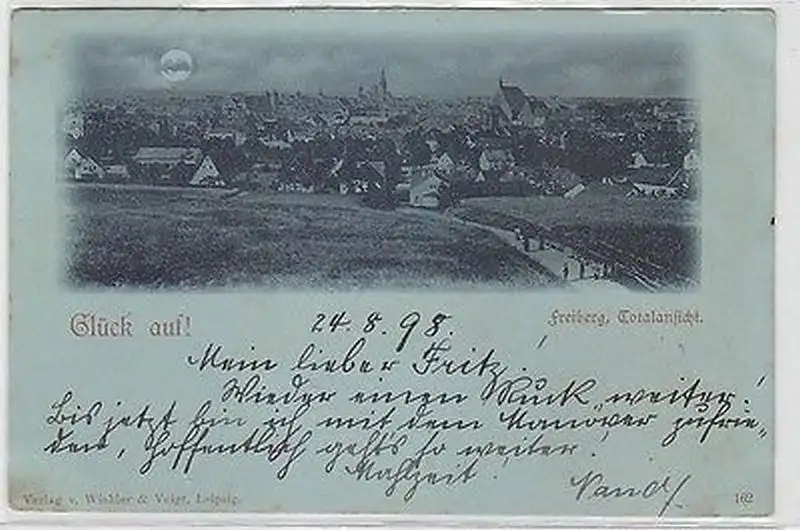 Glück auf!
24. 8. 98.
Freiberg, Totalansicht.
Mein lieber Fritz!
Wieder einen Ruck weiter!
Bis jetzt bin ich mit dem Manöver zufrie=
den, hoffentlich gehts so weiter.
Mahlzeit.
Verlag v. Winkler & Voigt, Leipzig.
162